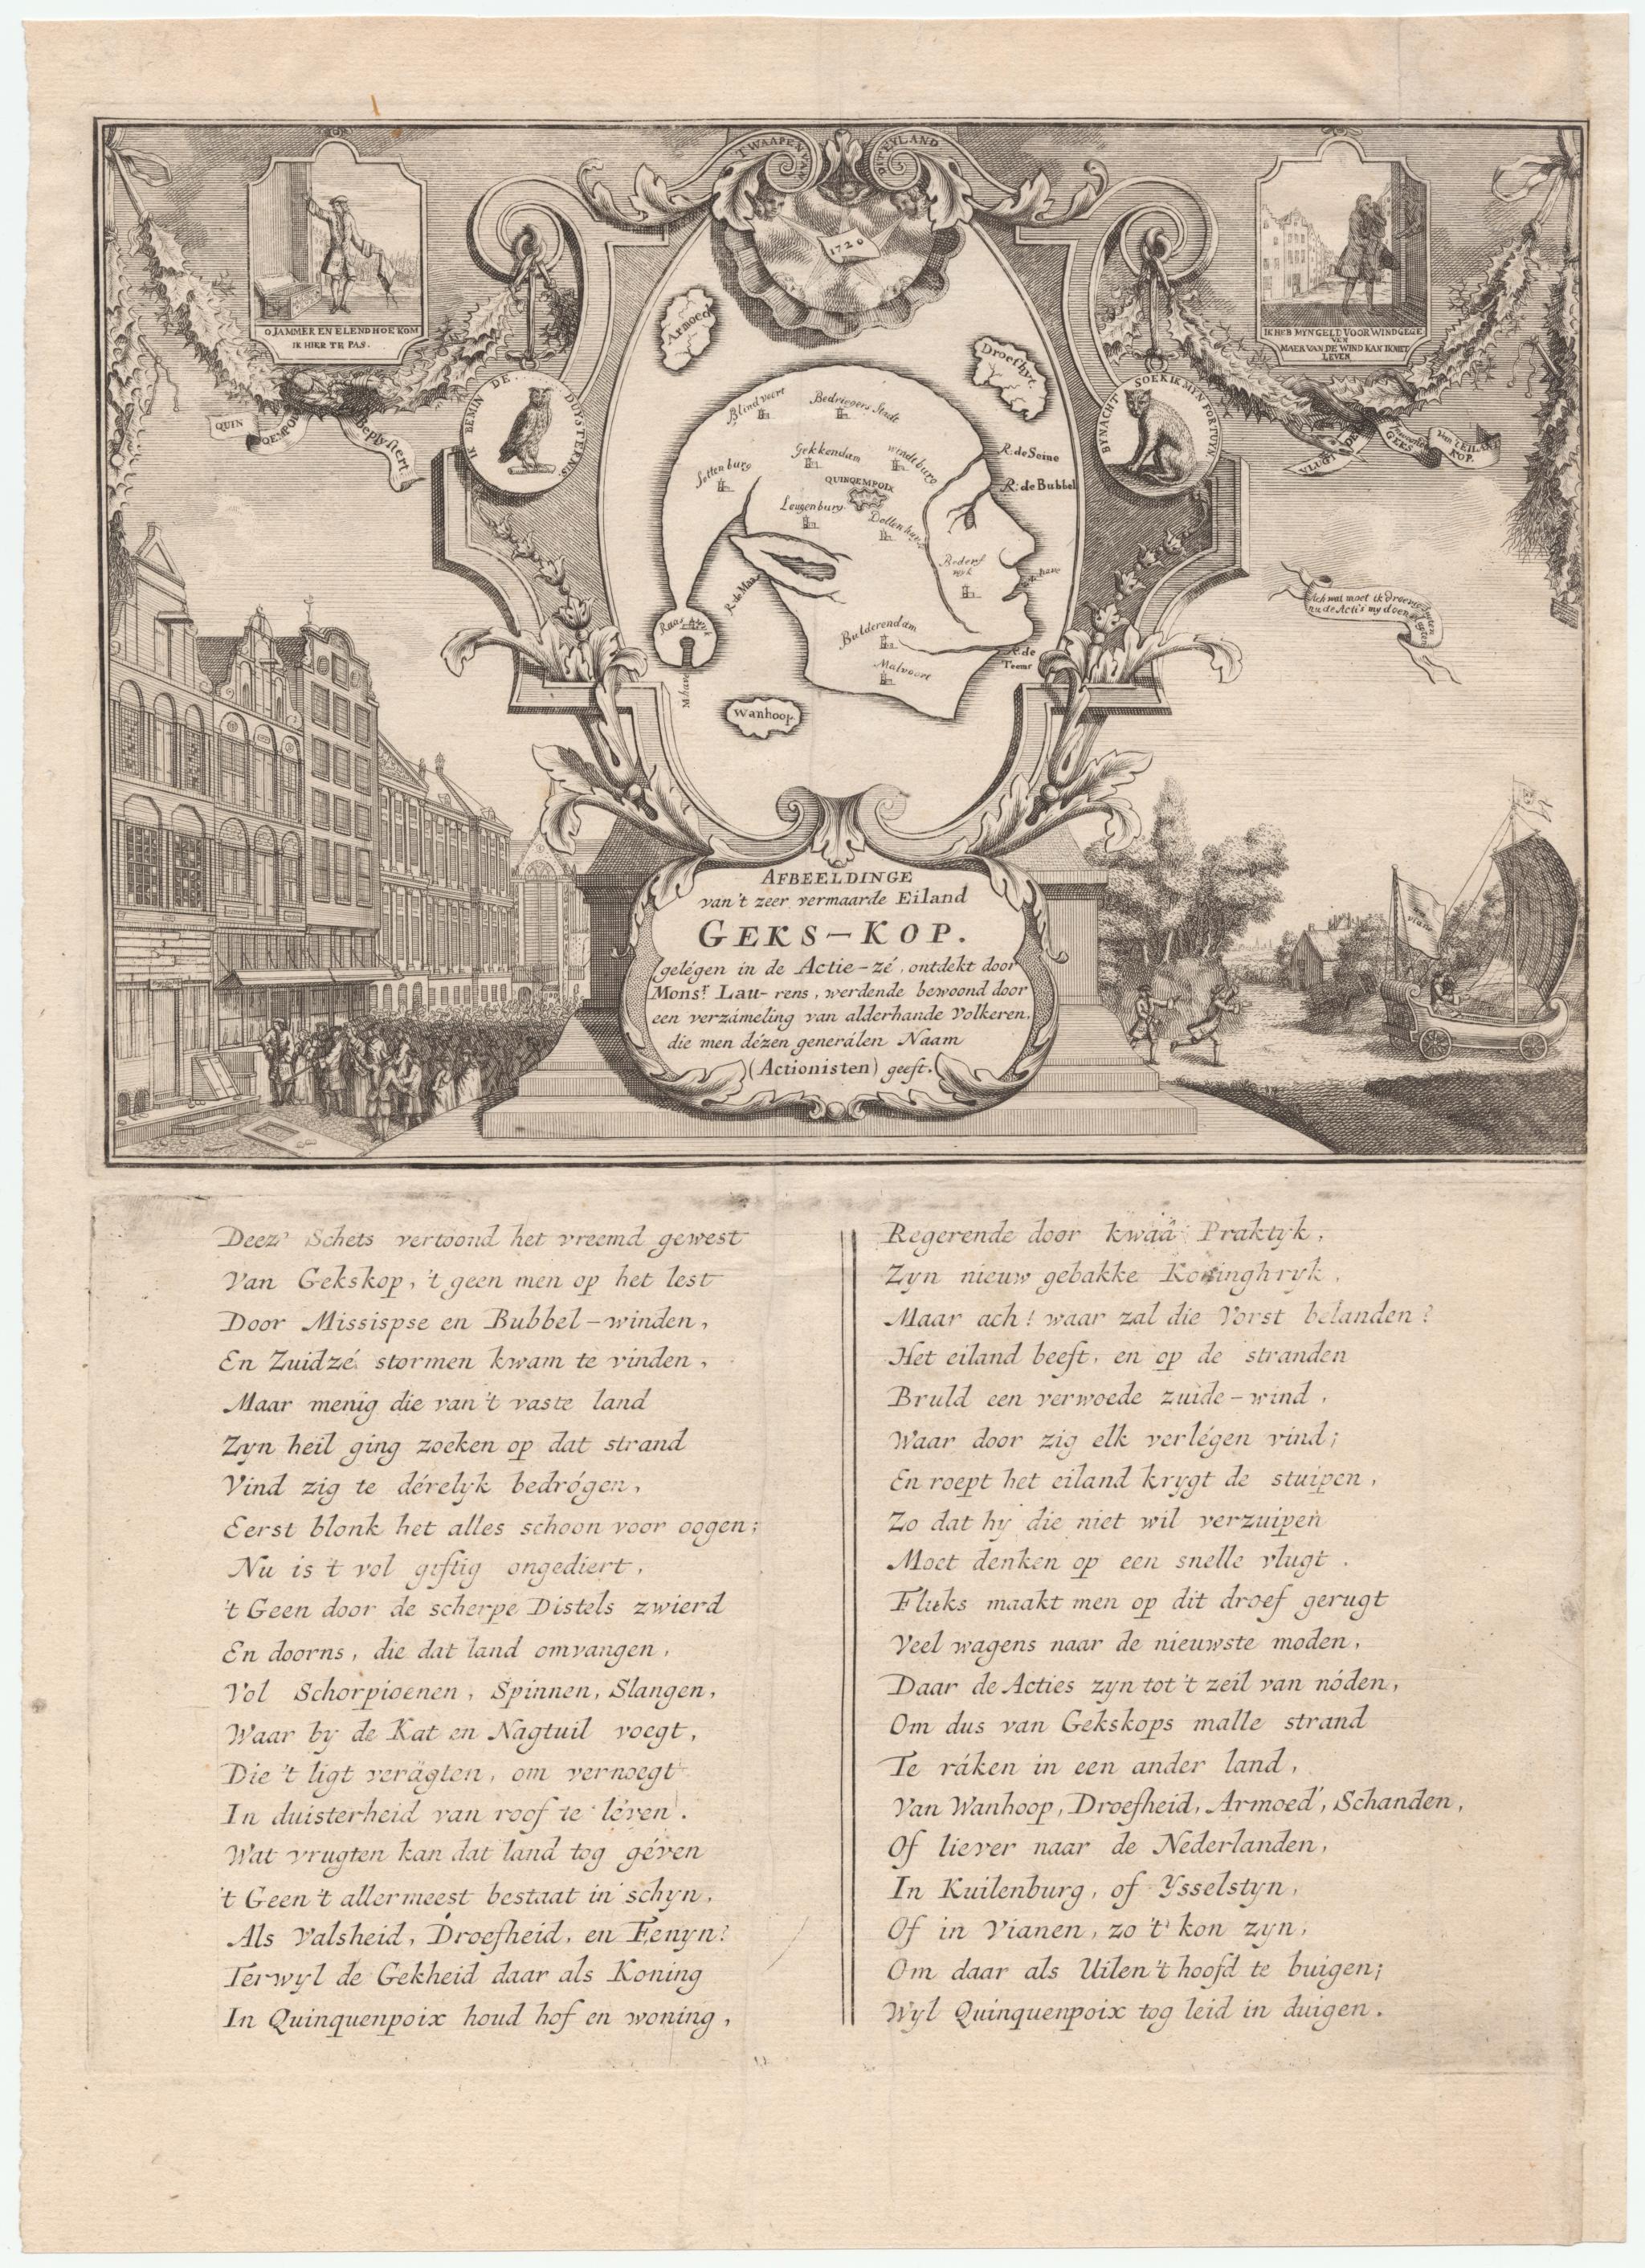 'T WAAPEN VAN DIT EYLAND
1720
O JAMMER EN ELEND HOE KOM
IK HIER TE PAS.
IK HEB MYN GELD VOOR WIND GEGE
VEN
MAER VAN DE WIND KAN IK NIET
LEVEN
QUIN QEMPOIX
Beplystert.
IK BEMIN DE DUYSTERNIS
BYNACHT SOEK IK MYN FORTUYN
VLUGT DER
GEKS
Van't EILAND
KOP.
Armoed
Droefhyt.
Blindvoort
Bedriegers Stadt
Gekkendam
Windtburg
R. de Seine
Sottenburg
QUINQEMPOIX
R. de Bubbel
Leugenburg
Dollenhave
Bederf
wyk
R. de Maas
Raas
Bulderendam
R. de
Teems
Malvoort
Wanhoop
Ach wat moet ik droevig
nu de Acti's my doen
AFBEELDINGE
van't zeer vermaarde Eiland
GEKS-KOP.
gelégen in de Actie-zé, ontdekt door
Mons.r Lau-rens, werdende bewoond door
een verzámeling van alderhande Volkeren,
die men dézen generálen Naam
(Actionisten) geeft.
Deez' Schets vertoond het vreemd gewest
Van Gekskop, 't geen men op het lest
Door Missispse en Bubbel-winden,
En Zuidzé stormen kwam te vinden,
Maar menig die van 't vaste land
Zyn heil ging zoeken op dat strand
Vind zig te dérelyk bedrógen,
Eerst blonk het alles schoon voor oogen;
Nu is 't vol giftig ongediert,
't Geen door de scherpe Distels zwierd
En doorns, die dat land omvangen,
Vol Schorpioenen, Spinnen, Slangen,
Waar by de Kat en Nagtuil voegt,
Die 't ligt verägten, om vernoegt
In duisterheid van roof te léven.
Wat vrugten kan dat land tog géven
't Geen 't allermeest bestaat in schyn,
Als Valsheid, Droefheid, en Fenyn?
Terwyl de Gekheid daar als Koning
In Quinquenpoix houd hof en woning,
Regerende door kwaä Praktyk,
Zyn nieuw gebakke Koninghryk,
Maar ach! waar zal die Vorst belanden?
Het eiland beeft, en op de stranden
Bruld een verwoede zuide-wind,
Waar door zig elk verlégen vind;
En roept het eiland krygt de stuipen,
Zo dat hy die niet wil verzuipen
Moet denken op een snelle vlugt.
Fluks maakt men op dit droef gerugt
Veel wagens naar de nieuwste moden,
Daar de Acties zyn tot 't zeil van nóden,
Om dus van Gekskops malle strand
Te ráken in een ander land,
Van Wanhoop, Droefheid, Armoed', Schanden,
Of liever naar de Nederlanden,
In Kuilenburg, of Ysselstyn,
Of in Vianen, zo 't kon zyn,
Om daar als Uilen 't hoofd te buigen;
Wyl Quinquenpoix tog leid in duigen.